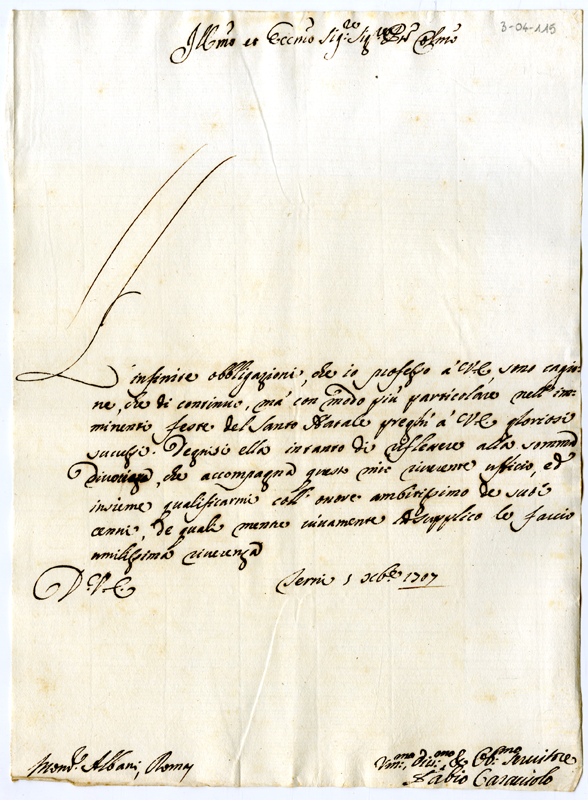 3-04-119
Ill.mo et Ecc.mo Sig.re Sig.re P.ne Col.mo
L'infinite obbligazioni, che io professo à V.E. sono cagio-
ne, che di continuo, mà con modo più particolare nell'im-
minenti feste del Santo Natale preghi à V.E. gloriosi
successi. Degnisi ella intanto di riflettere alla somma
divozione, che accompagna questo mio riverente ufficio, ed
insieme qualificarmi coll'onore ambitissimo de suoi
cenni, de quali mentre vivamente la supplico le faccio
umilissima riverenza
D. V.E. 5 Xbre 1707
Mons.r Albani, Roma
Um.mo Div.mo & Obb.mo Servitore
Fabio Caracciolo